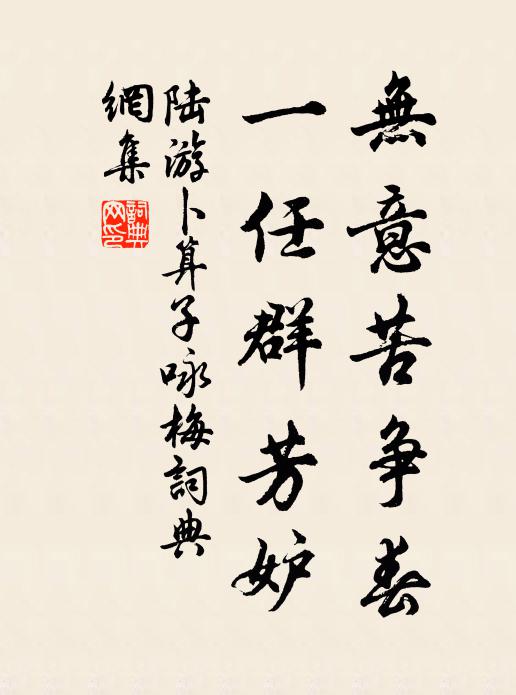 無意苦争春
一任群芳妒
陆游卜算子咏梅詞典
網集
詞典
网印